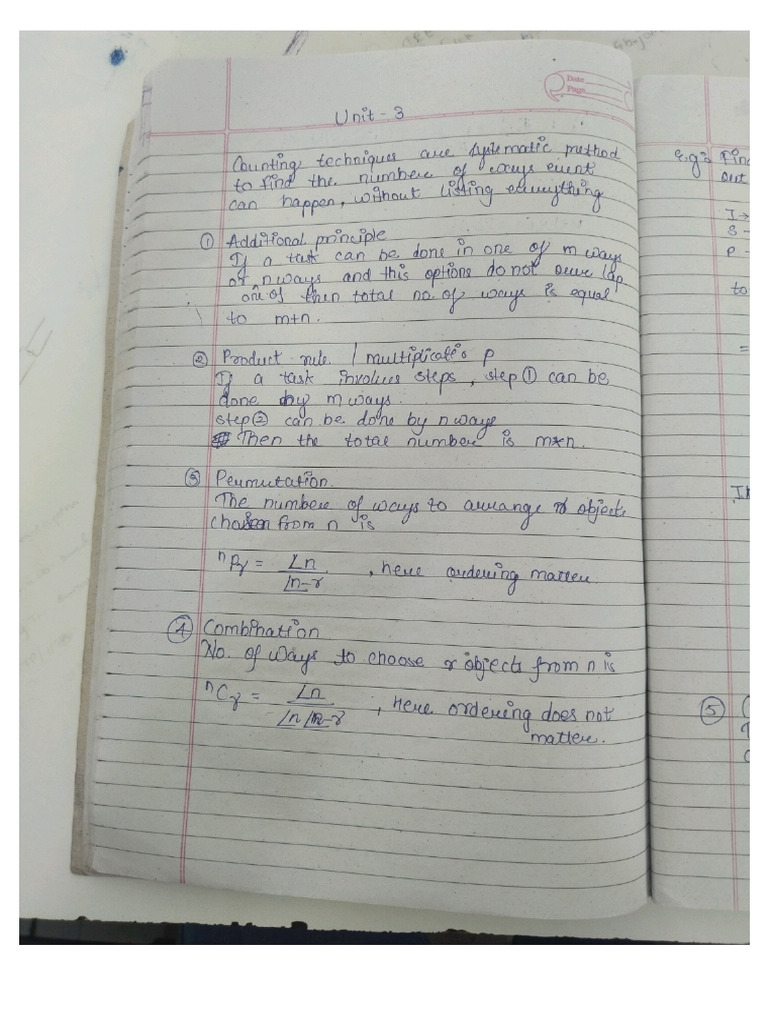 Date
Page
Unit - 3
Counting techniques are systematic method
to find the number of ways event
can happen, without listing everything
① Additional principle
If a task can be done in one of m ways
of n ways and this options do not over lap
one of then total no. of ways is equal
to m+n.
② Product rule / multiplicatio p
If a task involves steps, step ① can be
done by m ways.
step ② can be done by n ways
Then the total number is m*n.
③ Permutation.
The number of ways to arrange r objects
chosen from n is
ⁿPᵣ = ∠n / ∠n-r , here ordering matter.
④ Combination
No. of ways to choose r objects from n is
ⁿCᵣ = ∠n / ∠n ∠n-r , here ordering does not
matter.
e.g:
I →
S -
P -
to
=
⑤